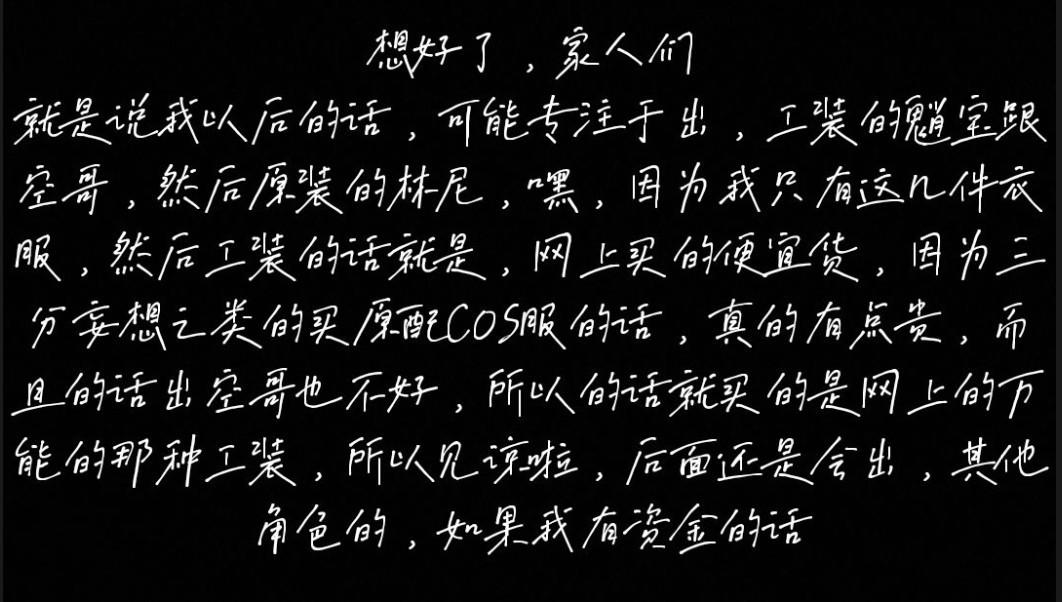 想好了，家人们
就是说我以后的话，可能专注于出，工装的魈宝跟
空哥，然后原装的林尼，嘿，因为我只有这几件衣
服，然后工装的话就是，网上买的便宜货，因为三
分妄想之类的买原配COS服的话，真的有点贵，而
且的话出空哥也不好，所以的话就买的是网上的万
能的那种工装，所以见谅啦，后面还是会出，其他
角色的，如果我有资金的话